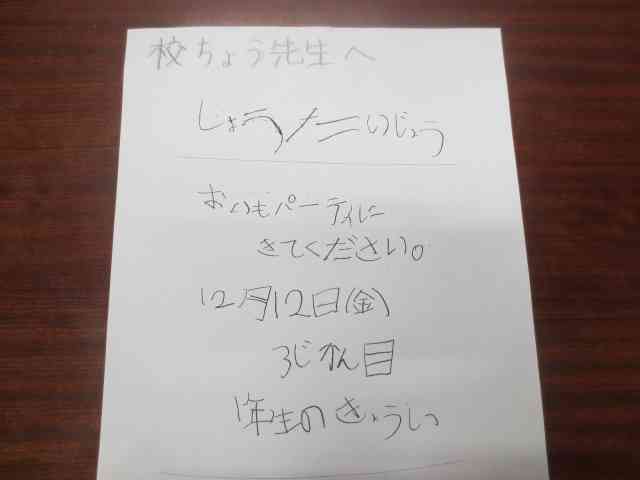 校ちょう先生へ
しょうたいじょう
おいもパーティに
きてください。
12月12日(金)
3じかん目
1年生のきょうしつ